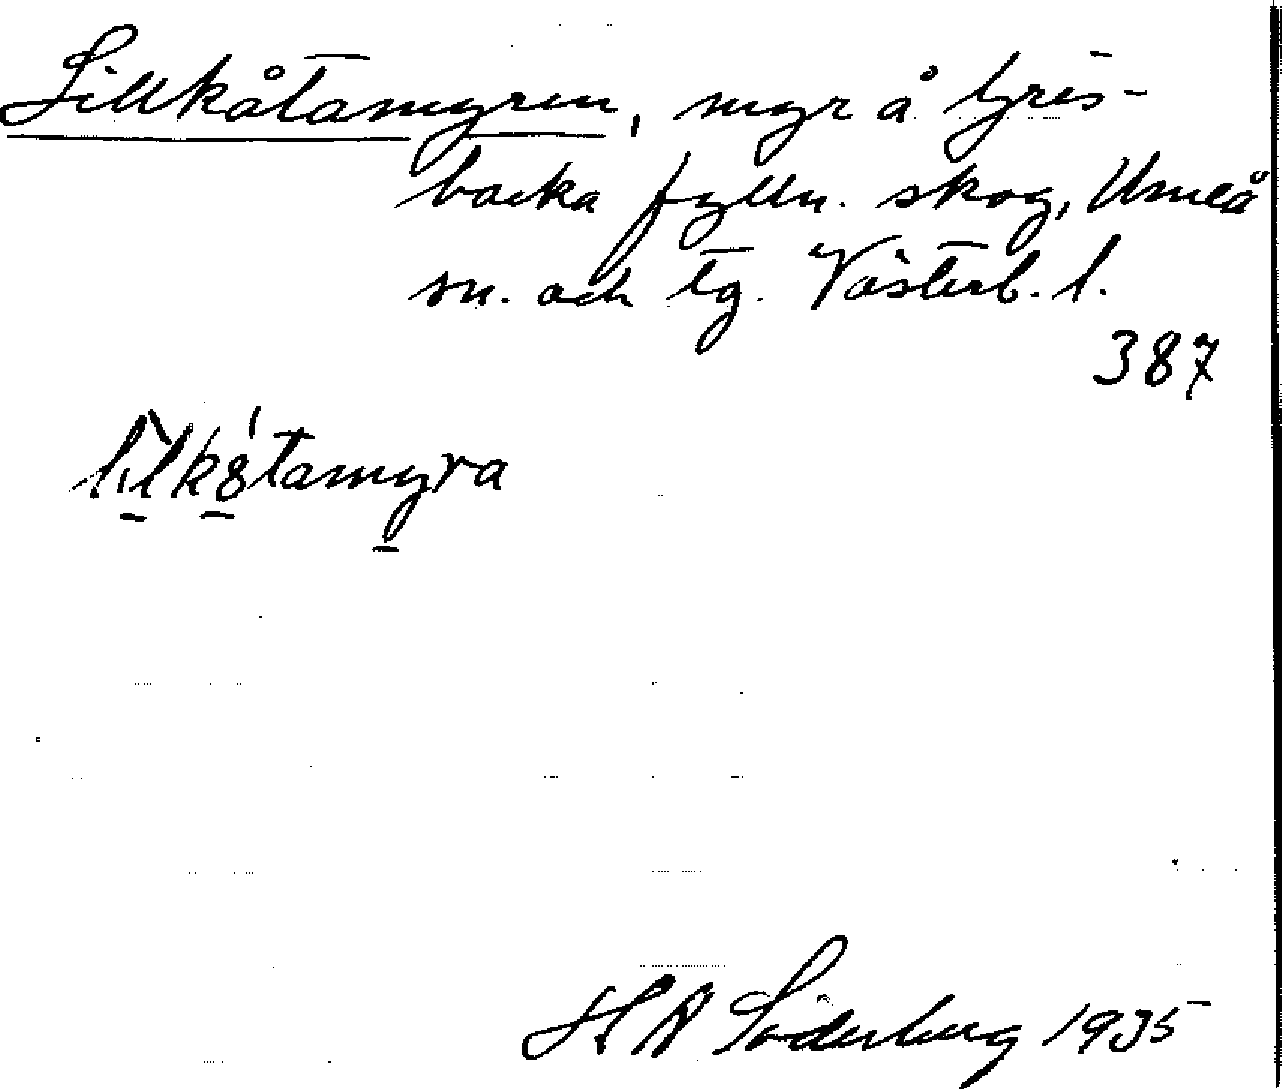 Lillkåtamyren, myr å Gris-
backa fylln. skog, Umeå
sn. och tg. Västerb. l.
387
lilkåtamyra
H A Söderberg 1935